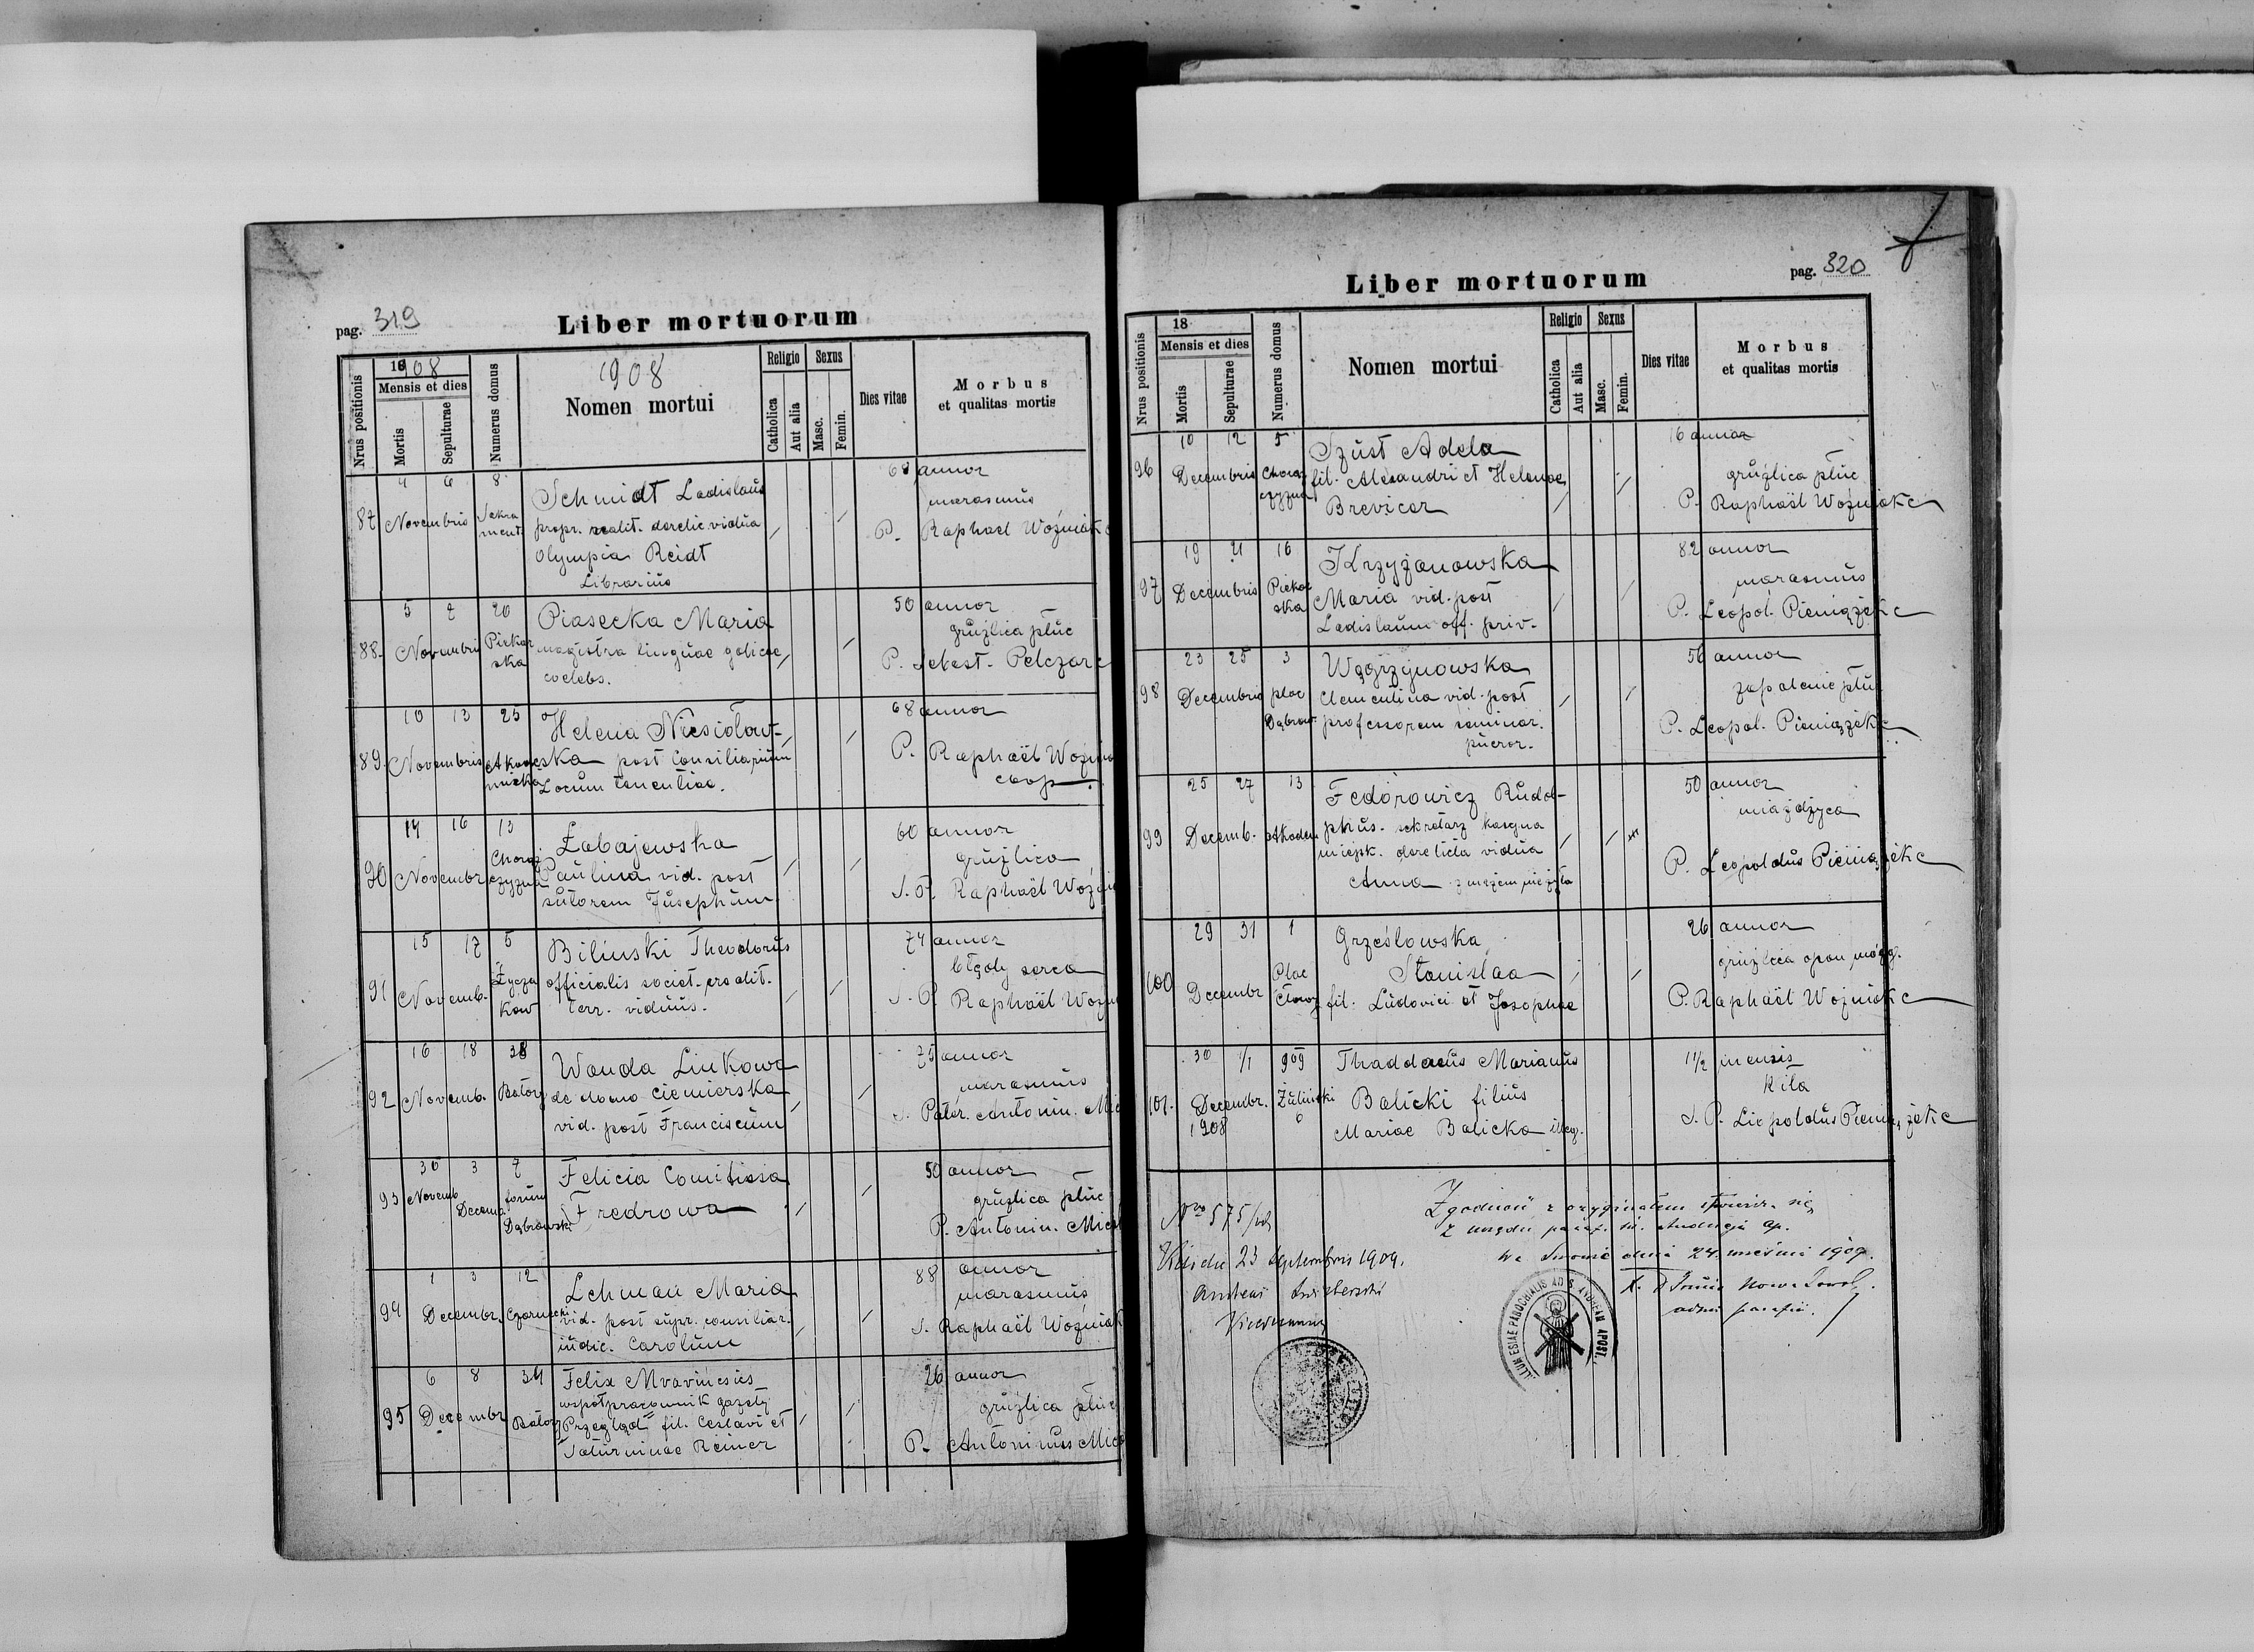 pag. 319
Liber mortuorum
Nrus positionis
1908
Mensis et dies
Mortis
Sepulturae
Numerus domus
1908
Nomen mortui
Religio
Catholica
Aut alia
Sexus
Masc.
Femin.
Dies vitae
Morbus
et qualitas mortis
87 4 6 Novembris 8
Schmidt Ladislaus
propr. realit. derelic. vidua
Olympia Reidt
Librarius
68 annor
marasmus
P. Raphael Woźniak c
88. 5 7 Novembris 20 Piekar
ska
Piasecka Maria
magistra linguae galicae
coelebs.
50 annor
gruźlica płuc
P. Sebast. Pelczar c
89. 10 13 Novembris 25 Akade
micka
Helena Niesiołow-
ska post Consiliarium
Locum tenentiae.
68 annor
P. Raphaël Woźnia
coop.
90 14 16 Novembr 13 Chorąż
czyzna
Łabajewska
Paulina vid. post
sutorem Josephum
60 annor
gruźlica
S. P. Raphaël Woźni
91 15 17 Novemb. 5 Łycza
kow
Biliński Theodorus
officialis societ. credit.
terr. viduus.
74 annor
błędy serca
S. P. Raphaël Woźn
92 16 18 Novemb. 38 Batory
Wanda Linkowa
de domo Ciemierska
vid. post Franciscum
75 annor
marasmus
S. Pater. Antonin. Mic
93 30 Novemb 3 Decemb. 7 forum
Dąbrowski
Felicia Comitissa
Fredrowa
50 annor
gruźlica płuc
P. Antonin. Mic
94 1 3 Decembr. 12 Czarnecki
Lehman Maria
vid. post supr. consiliar.
iudic. Carolum
88 annor
marasmus
S. Raphaël Woźniak
95 6 8 Decembr 34 Batory
Felix
współpracownik gazety
"Przegląd" fil. Ceslavi et
Saturninae Reiner
26 annor
gruźlica płuc
P. Antoninus Mic
pag. 320
Liber mortuorum
Nrus positionis
18
Mensis et dies
Mortis
Sepulturae
Numerus domus
Nomen mortui
Religio
Catholica
Aut alia
Sexus
Masc.
Femin.
Dies vitae
Morbus
et qualitas mortis
96 10 12 Decembris 5 Chorąż
czyzna
Szust Adela
fil. Alexandri et Helenae
Brevicar
16 annor
gruźlica płuc
P. Raphaël Woźniak c
97 19 21 Decembris 16 Piekar
ska
Krzyżanowska
Maria vid. post
Ladislaum off. priv.
82 annor
marasmus
P. Leopol. Pieniążek c
98 23 25 Decembris 3 plac
Dąbrow.
Węgrzynowska
Clementina vid. post
professorem seminar.
pueror.
56 annor
zapalenie płuc
P. Leopol. Pieniążek c
99 25 27 Decemb. 13 Akadem
Fedorowicz Rudol-
phus. sekretarz kasyna
miejsk. derelicta vidua
Anna z mężem nie żyła
50 annor
miażdżyca
P. Leopoldus Pieniążek c
100 29 31 Decembr 1 Plac
Cłowy
Grześlowska
Stanislaa
fil. Ludovici et Josephae
26 annor
gruźlica opon mózg.
P. Raphaël Woźniak c
101. 30 1/1 909
Decembr.
1908
Żulinski
6
Thaddaeus Marianus
Balicki filius
Mariae Balicka illeg.
1 1/2 mensis
Kiła
S. P. Leopoldus Pieniążek c
Nro 575/
Vidi die 23 Septembris 1909.
Andreas
Zgodność z oryginałem stwierdza się
z urzędu paraf. św. Andrzeja Ap.
We Lwowie dnia 24. września 1909.
adm. parafii.
AD S. ANDREAM APOST.